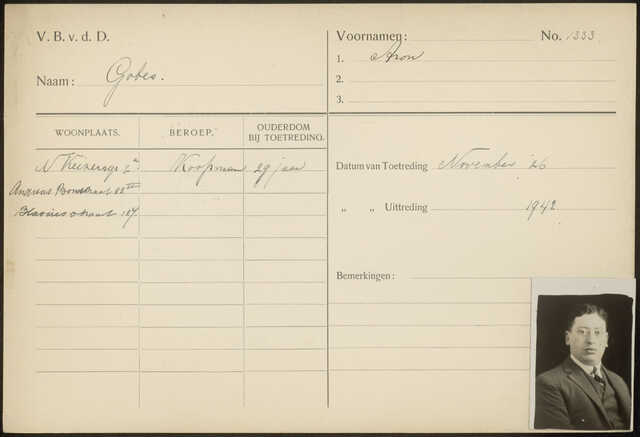 V. B. v. d. D.
Naam: Gobes.
Voornamen: No. 1333.
1. Aron
2.
3.
WOONPLAATS. BEROEP. OUDERDOM BIJ TOETREDING.
N Keizersgr Koopman 29 jaar
Andreas Bonnstraat
Blasiusstraat 107.
Datum van Toetreding November '26
„ „ Uittreding 1942.
Bemerkingen: